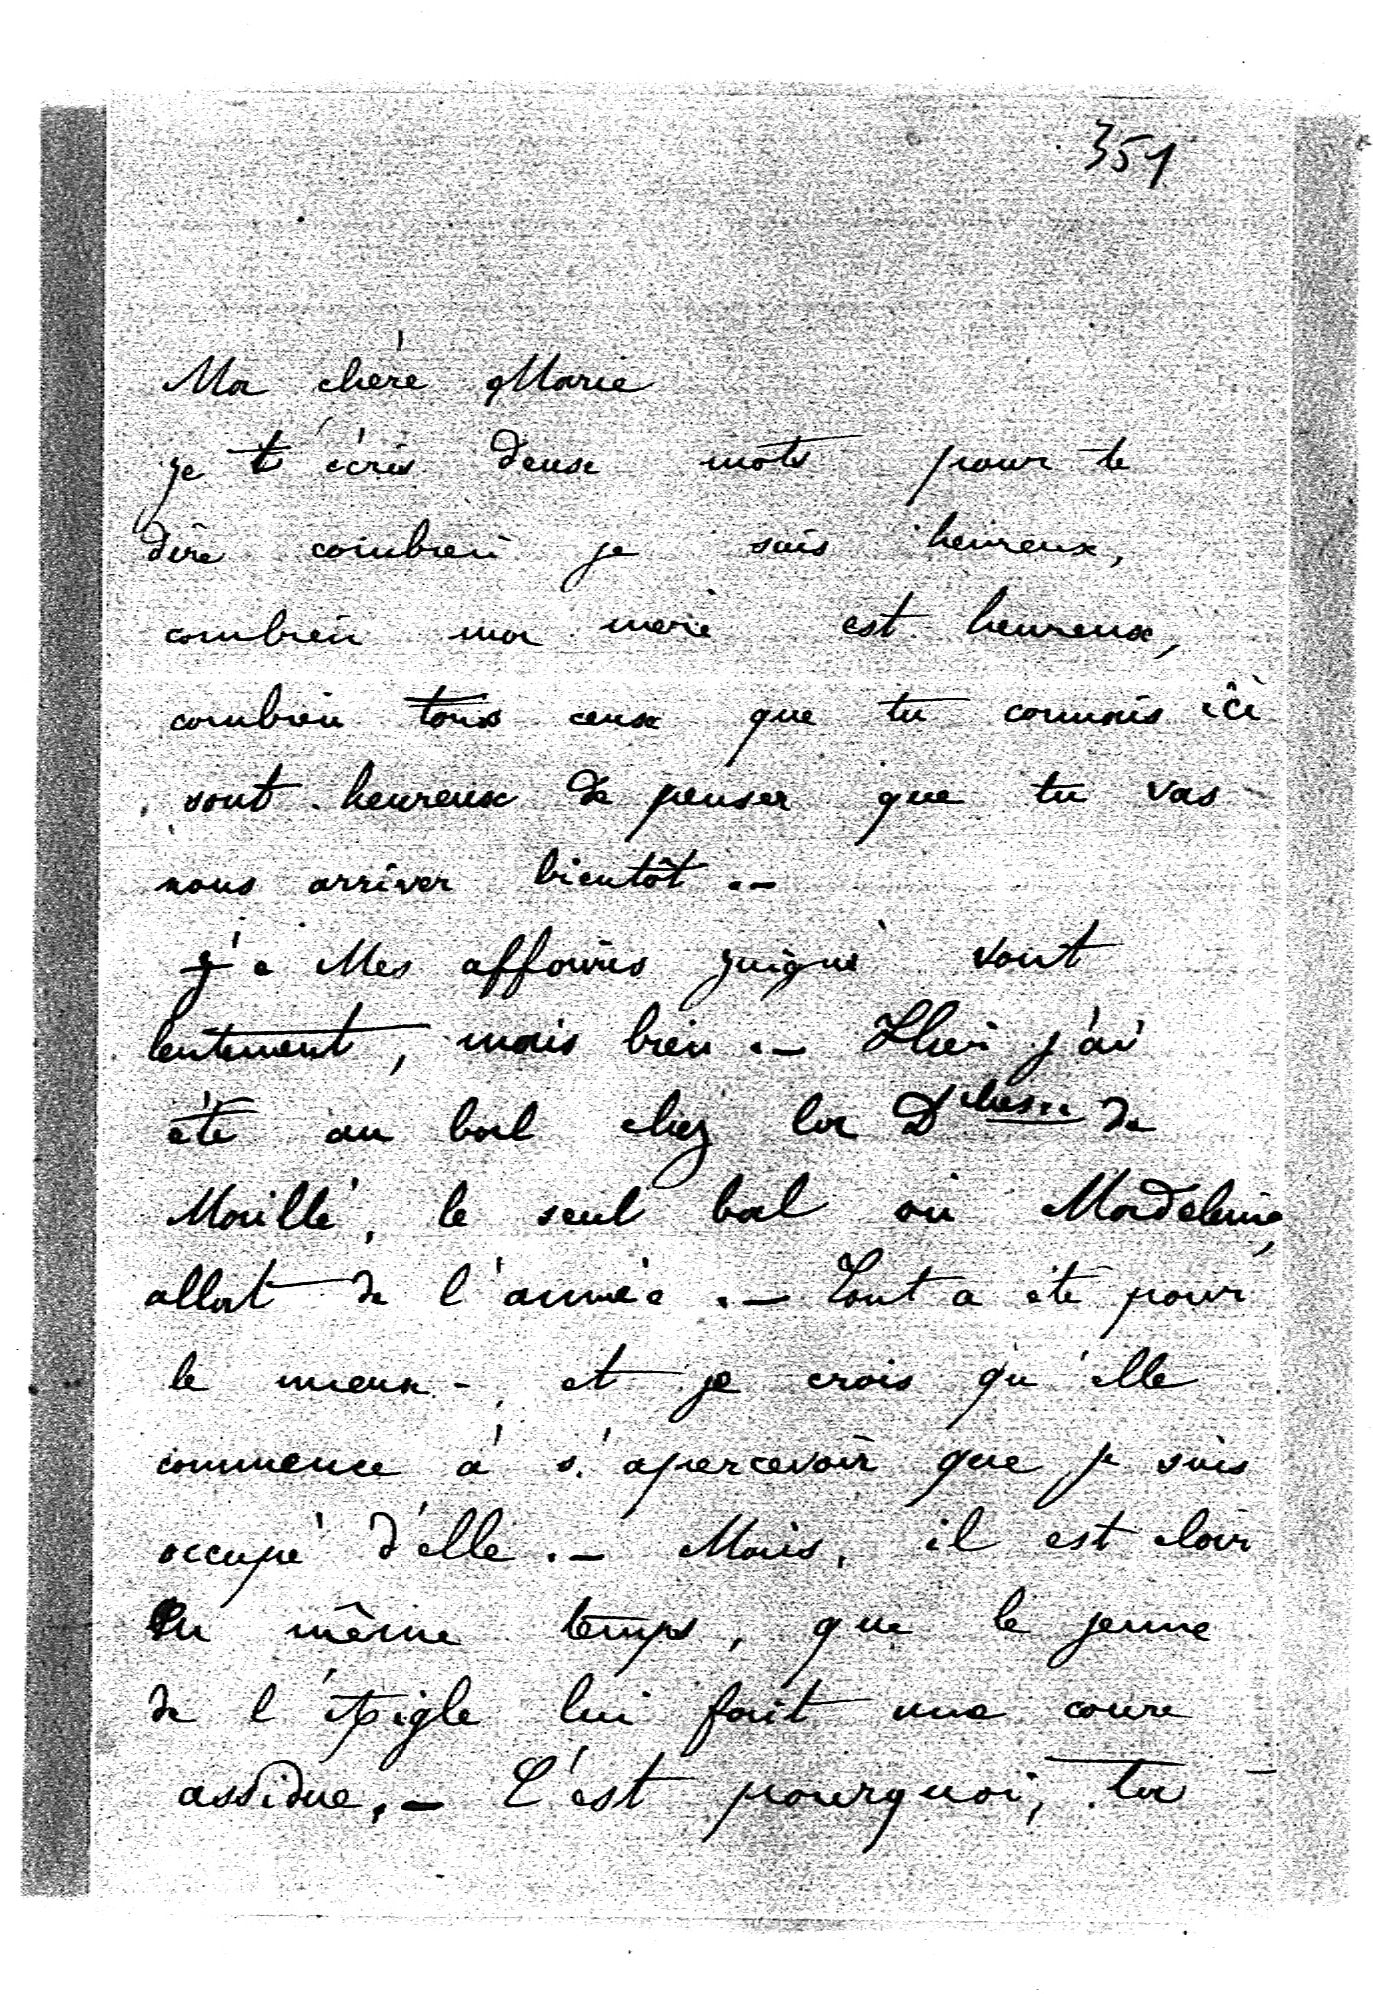 351
Ma chère Marie
je t'écris deux mots pour te
dire combien je suis heureux,
combien ma mère est heureux,
combien tous ceux que tu connais ici
sont heureux de penser que tu vas
nous arriver bientôt .–
Mes affaires vont
lentement, mais bien .– Hier j'ai
été au bal chez la Dchesse de
Maillé, le seul bal où Madeleine
allait de l'année .– Tout a été pour
le mieux –, et je crois qu'elle
commence à s'apercevoir que je suis
occupé d'elle .– Mais, il est clair
en même temps, que le jeune
de l'Aigle lui fait une coure
assidue, .– C'est pourquoi, ta